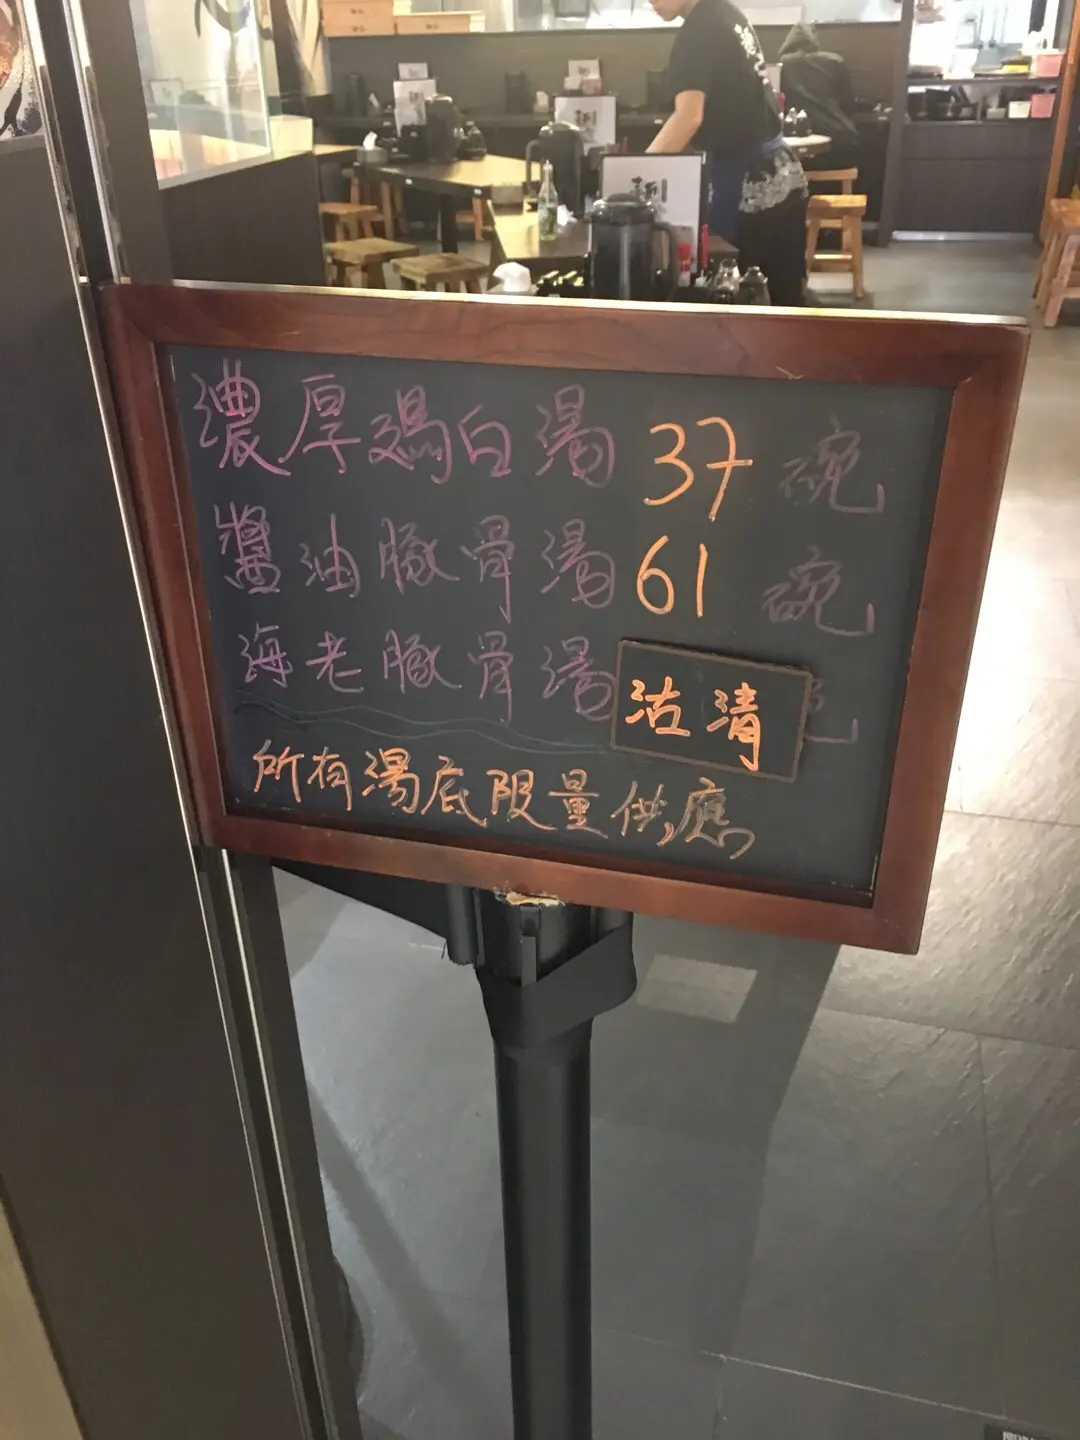 濃厚鷄白湯 37 碗
醬油豚骨湯 61 碗
海老豚骨湯 沽清
所有湯底限量供應